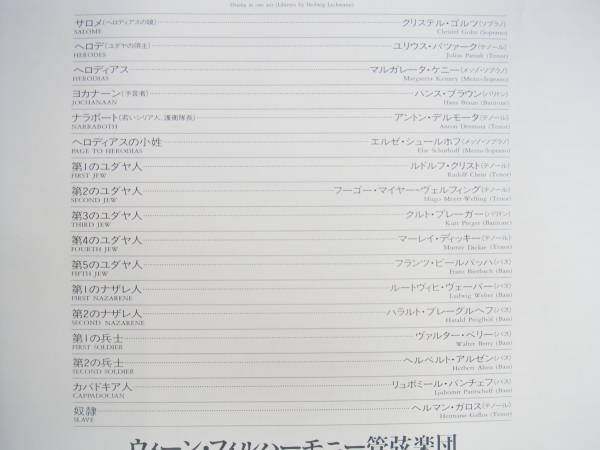 Drama in one act (Libretto by Hedwig Lachmann)
サロメ(ヘロディアスの娘) クリステル・ゴルツ(ソプラノ)
SALOME Christel Goltz (Soprano)
ヘロデ(ユダヤの領主) ユリウス・パツァーク(テノール)
HERODES Julius Patzak (Tenor)
ヘロディアス マルガレータ・ケニー(メッゾ・ソプラノ)
HERODIAS Margareta Kenney (Mezzo-Soprano)
ヨカナーン(予言者) ハンス・ブラウン(バリトン)
JOCHANAAN Hans Braun (Baritone)
ナラボート(若いシリア人、護衛隊長) アントン・デルモータ(テノール)
NARRABOTH Anton Dermota (Tenor)
ヘロディアスの小姓 エルゼ・シュールホフ(メッゾ・ソプラノ)
PAGE TO HERODIAS Else Schürhoff (Mezzo-Soprano)
第1のユダヤ人 ルドルフ・クリスト(テノール)
FIRST JEW Rudolf Christ (Tenor)
第2のユダヤ人 フーゴー・マイヤー=ヴェルフィング(テノール)
SECOND JEW Hugo Meyer-Welfing (Tenor)
第3のユダヤ人 クルト・プレーガー(バリトン)
THIRD JEW Kurt Preger (Baritone)
第4のユダヤ人 マーレイ・ディッキー(テノール)
FOURTH JEW Murray Dickie (Tenor)
第5のユダヤ人 フランツ・ビールバッハ(バス)
FIFTH JEW Franz Bierbach (Bass)
第1のナザレ人 ルートヴィヒ・ヴェーバー(バス)
FIRST NAZARENE Ludwig Weber (Bass)
第2のナザレ人 ハラルト・プレーグルヘフ(バス)
SECOND NAZARENE Harald Pröglhöf (Bass)
第1の兵士 ヴァルター・ベリー(バス)
FIRST SOLDIER Walter Berry (Bass)
第2の兵士 ヘルベルト・アルゼン(バス)
SECOND SOLDIER Herbert Alsen (Bass)
カパドキア人 リュボミール・パンチェフ(バス)
CAPPADOCIAN Ljubomir Pantscheff (Bass)
奴隷 ヘルマン・ガロス(テノール)
SLAVE Hermann Gallos (Tenor)
ウィーン・フィルハーモニー管弦楽団